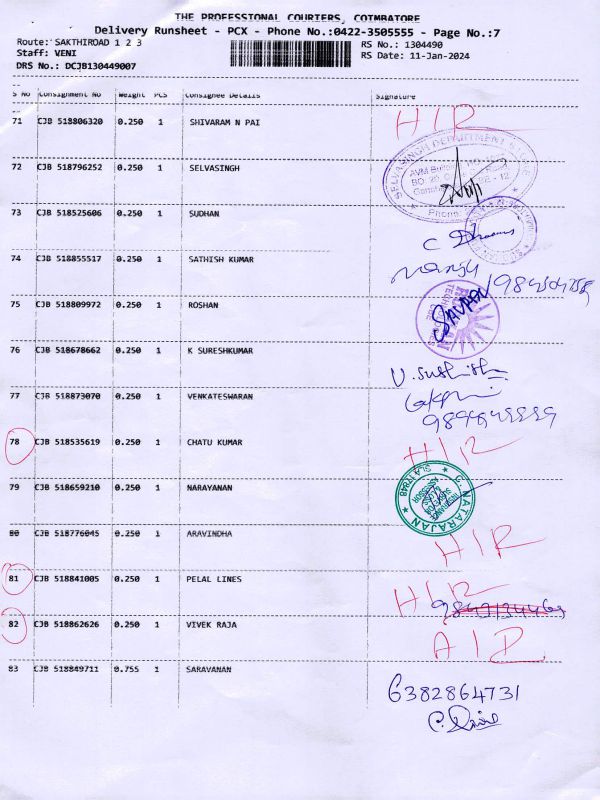 THE PROFESSIONAL COURIERS, COIMBATORE
Delivery Runsheet - PCX - Phone No.:0422-3505555 - Page No.:7
Route: SAKTHIROAD 1 2 3
RS No.: 1304490
Staff: VENI
RS Date: 11-Jan-2024
DRS No.: DCJB130449007
S No Consignment No Weight PCS Consignee Details Signature
71 CJB 518806320 0.250 1 SHIVARAM N PAI H/R
72 CJB 518796252 0.250 1 SELVASINGH
SELVASINGH DEPARTMENT
Phone
73 CJB 518525606 0.250 1 SUDHAN
74 CJB 518855517 0.250 1 SATHISH KUMAR
75 CJB 518809972 0.250 1 ROSHAN
76 CJB 518678662 0.250 1 K SURESHKUMAR
77 CJB 518873070 0.250 1 VENKATESWARAN
78 CJB 518535619 0.250 1 CHATU KUMAR H/R
79 CJB 518659210 0.250 1 NARAYANAN
NATARAJAN
80 CJB 518776045 0.250 1 ARAVINDHA H/R
81 CJB 518841005 0.250 1 PELAL LINES H/R
82 CJB 518862626 0.250 1 VIVEK RAJA
83 CJB 518849711 0.755 1 SARAVANAN 6382864731